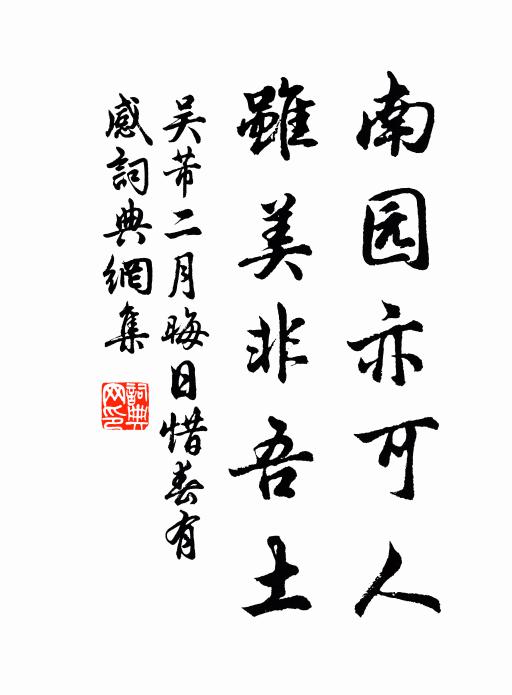 南园亦可人
雖美非吾土
吴芾二月晦日惜春有
感詞典網集
詞典
网印